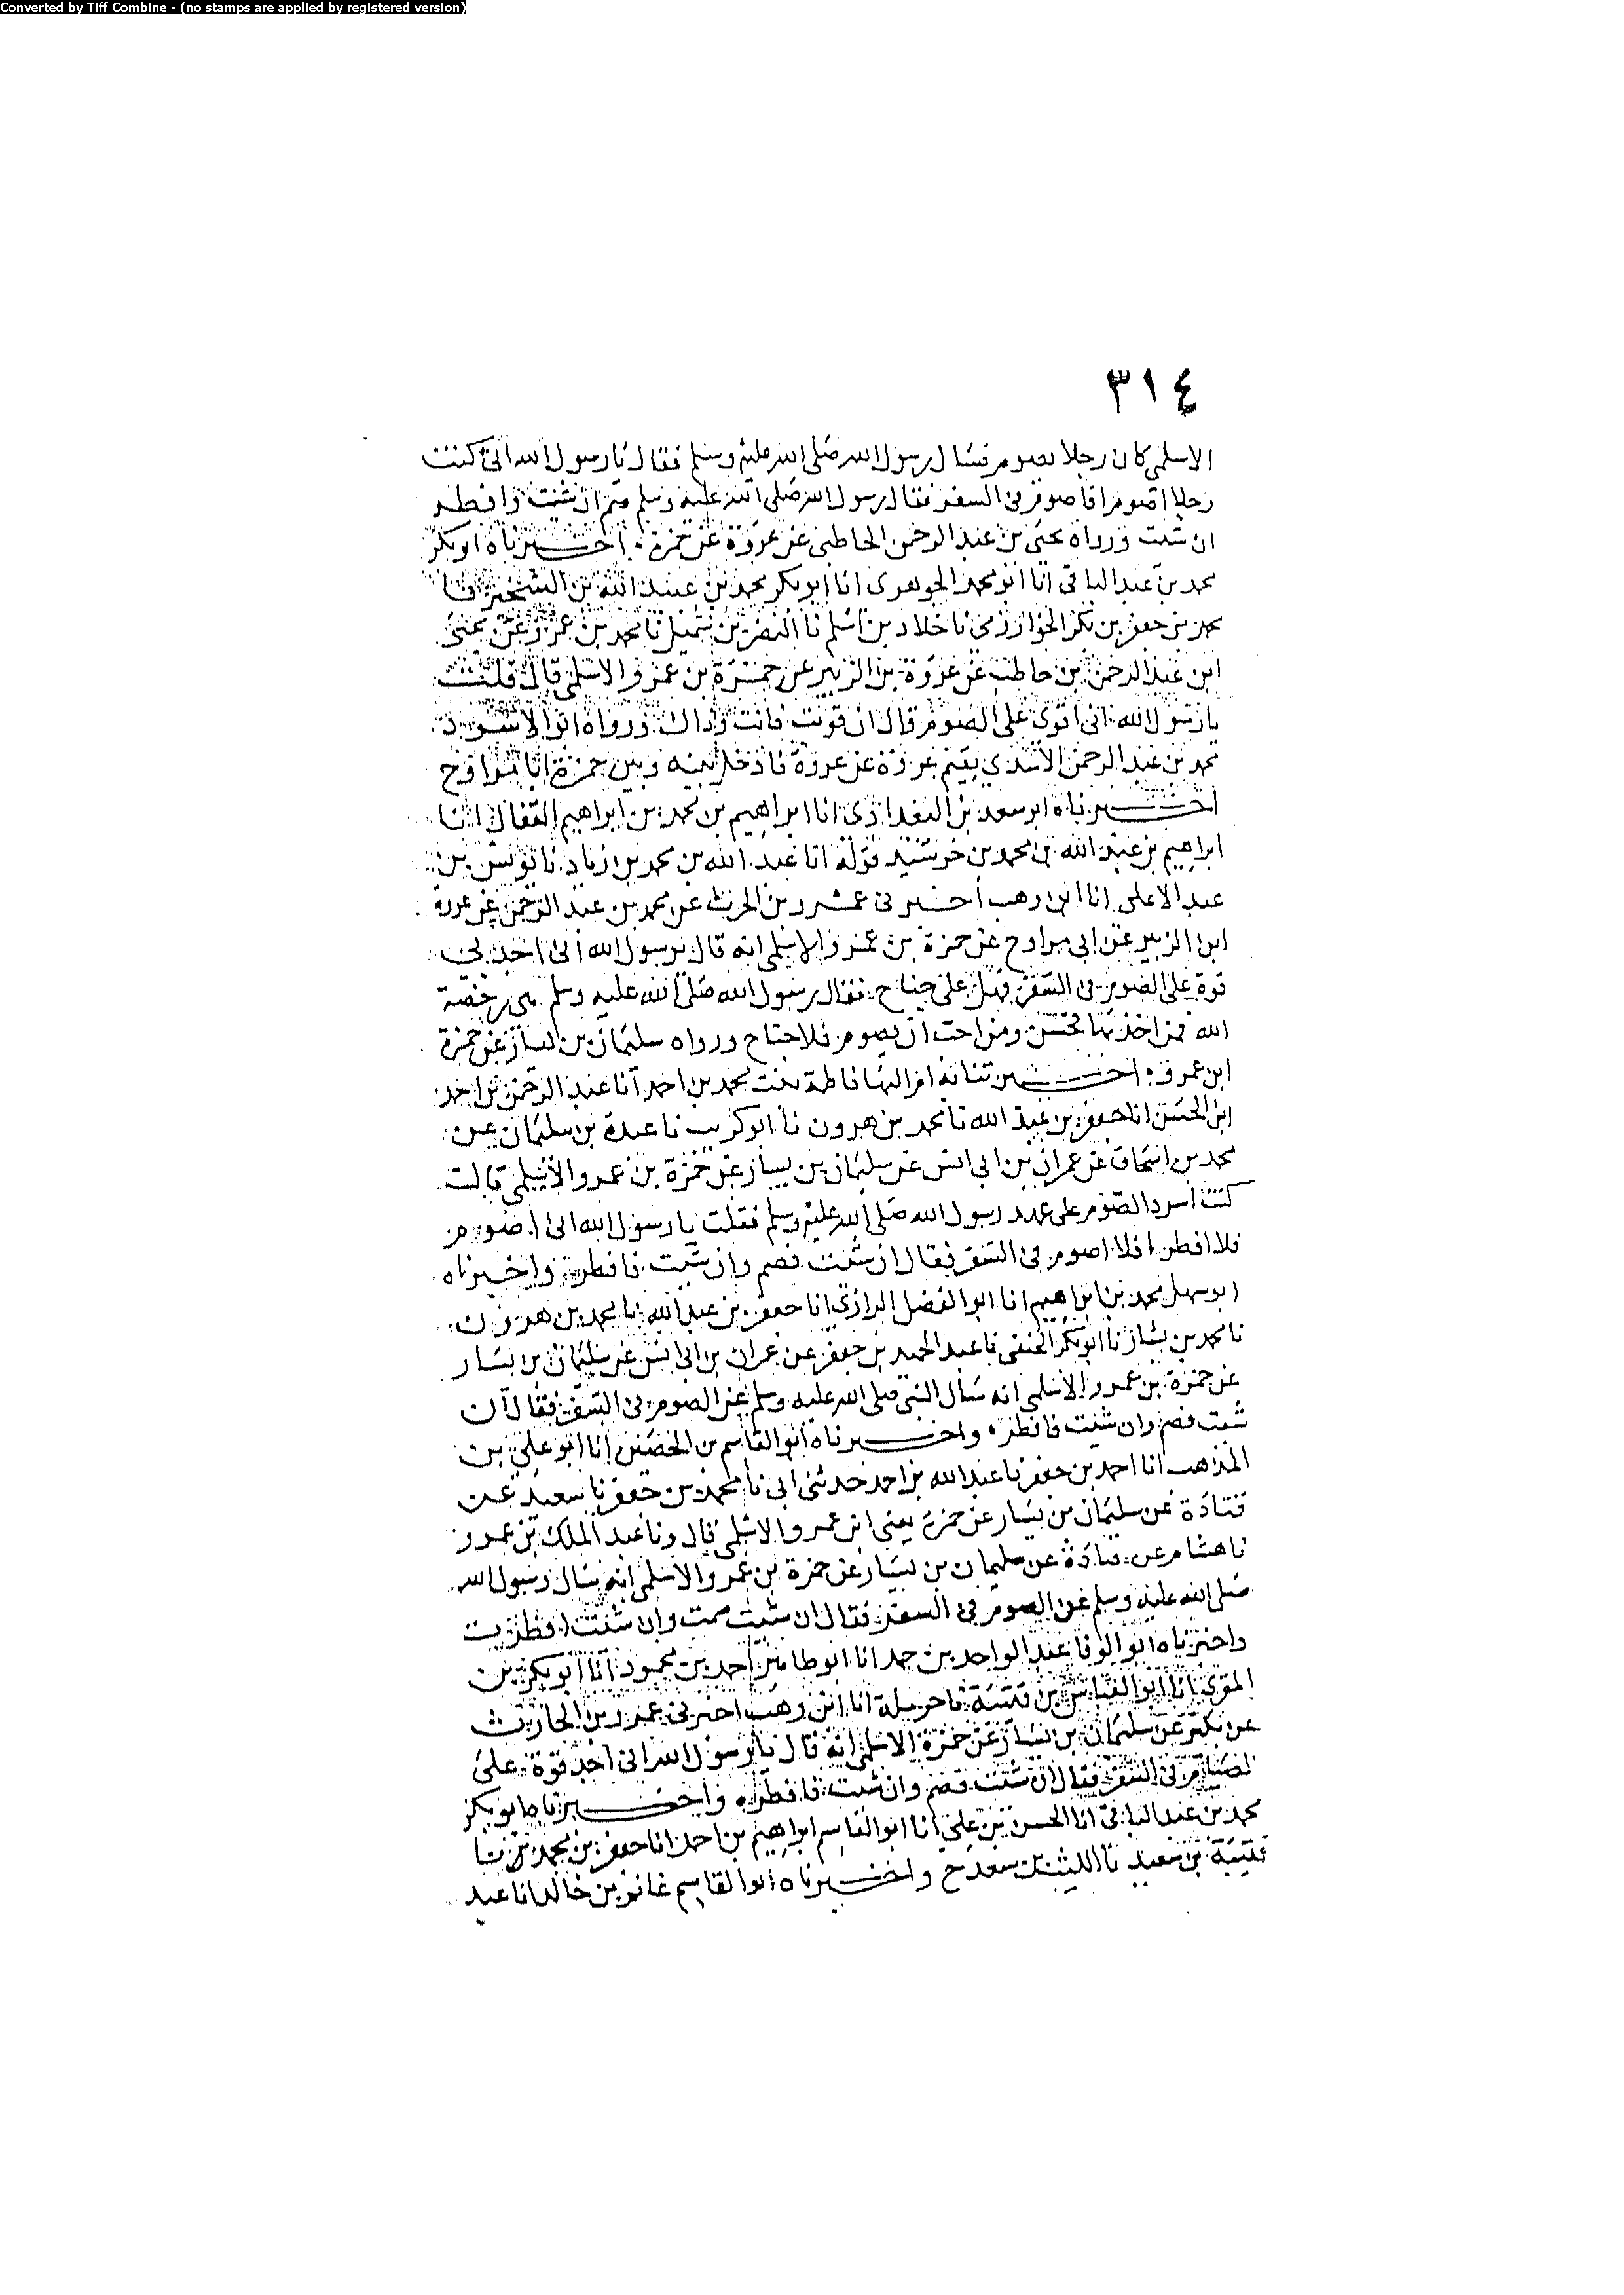 Converted by Tiff Combine - (no stamps are applied by registered version)
٣١٤
الاسلمى كان رجلا يصوم فسال رسول الله صلى الله عليه وسلم فقال يا رسول الله انى كنت
رجلا اصوم افاصوم فى السفر فقال رسول الله صلى الله عليه وسلم صم ان شئت وافطر
ان شئت ورواه يحيى بن عبد الرحمن الحاطبى عن عروة عن حمزة اخبرناه ابو بكر
محمد بن عبد الباقى انا ابو محمد الجوهرى انا ابو بكر محمد بن عبيد الله بن الشخير نا
محمد بن جعفر بن بكر الخوارزمى نا خلاد بن اسلم نا النضر بن شميل نا محمد بن عمرو عن يحيى
ابن عبد الرحمن بن حاطب عن عروة بن الزبير عن حمزة بن عمرو الاسلمى قال قلت
يا رسول الله انى اقوى على الصوم قال ان قويت فانت وذاك ورواه ابو الاسود
محمد بن عبد الرحمن الاسدى يتيم عروة عن عروة فادخل بينه وبين حمزة ابا مراوح
اخبرناه ابو سعد بن البغدادى انا ابراهيم بن محمد بن ابراهيم القفال انا
ابراهيم بن عبد الله بن محمد بن خرشيد قوله انا عبد الله بن محمد بن زياد نا يونس بن
عبد الاعلى انا ابن وهب اخبرنى عمرو بن الحرث عن محمد بن عبد الرحمن عن عروة
ابن الزبير عن ابى مراوح عن حمزة بن عمرو الاسلمى انه قال يرسول الله انى اجد بى
قوة على الصوم فى السفر فهل على جناح فقال رسول الله صلى الله عليه وسلم هى رخصة
الله فمن اخذ بها فحسن ومن احب ان يصوم فلا جناح ورواه سليمان بن يسار عن حمزة
ابن عمرو اخبرتنا به ام البها فاطمة بنت محمد بن احمد انا عبد الرحمن بن احمد
ابن الحسن انا جعفر بن عبد الله نا محمد بن هرون نا ابو كريب نا عبدة بن سليمان عن
محمد بن اسحاق عن عمران بن ابى انس عن سليمان بن يسار عن حمزة بن عمرو الاسلمى قالت
كنت اسرد الصوم على عهد رسول الله صلى الله عليه وسلم فقلت يا رسول الله انى اصوم
فلا افطر افلا اصوم فى السفر فقال ان شئت فصم وان شئت فافطر واخبرناه
ابو سهل محمد بن ابراهيم انا ابو الفضل الرازى انا جعفر بن عبد الله نا محمد بن هرون
نا محمد بن بشار نا ابو بكر الحنفى نا عبد الحميد بن جعفر عن عمران بن ابى انس عن سليمان بن يسار
عن حمزة بن عمرو الاسلمى انه سأل النبى صلى الله عليه وسلم عن الصوم فى السفر فقال ان
شئت فصم وان شئت فافطره واخبرناه ابو القاسم بن الحصين انا ابو على بن
المذهب انا احمد بن جعفر نا عبد الله بن احمد حدثنى ابى نا محمد بن جعفر نا سعيد عن
قتادة عن سليمان بن يسار عن حمزة يعنى ابن عمرو الاسلمى قال ونا عبد الملك بن عمرو
نا هشام عن قتادة عن سليمان بن يسار عن حمزة بن عمرو الاسلمى انه سال رسول الله
صلى الله عليه وسلم عن الصوم فى السفر فقال ان شئت صمت وان شئت افطرت
واخبرناه ابو الوفا عبد الواحد بن حمد انا ابو طاهر احمد بن محمود انا ابو بكر بن
المقرى انا ابو العباس بن قتيبة نا حرملة انا ابن وهب اخبرنى عمرو بن الحارث
عن بكير عن سليمان بن يسار عن حمزة الاسلمى انه قال يا رسول الله انى اجد قوة على
الصيام فى السفر فقال ان شئت فصم وان شئت فافطره واخبرناه ابو بكر
محمد بن عبد الباقى انا الحسن بن على انا ابو القاسم ابراهيم بن احمد انا جعفر بن محمد نا
قتيبة بن سعيد نا الليث بن سعد ح واخبرناه ابو القاسم غانم بن خالد انا عبد